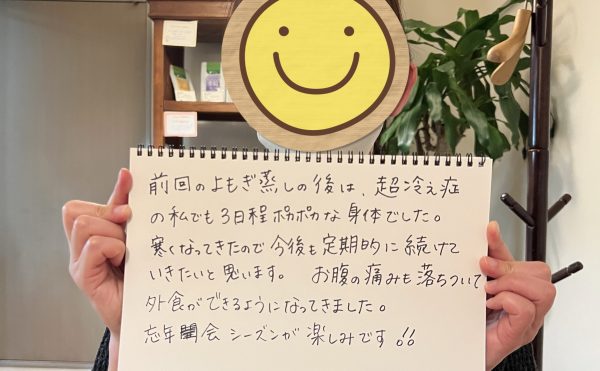 前回のよもぎ蒸しの後は、超冷え症
の私でも3日程ポカポカな身体でした。
寒くなってきたので今後も定期的に続けて
いきたいと思います。 お腹の痛みも落ちついて
外食ができるようになってきました。
忘年会 シーズンが楽しみです!!